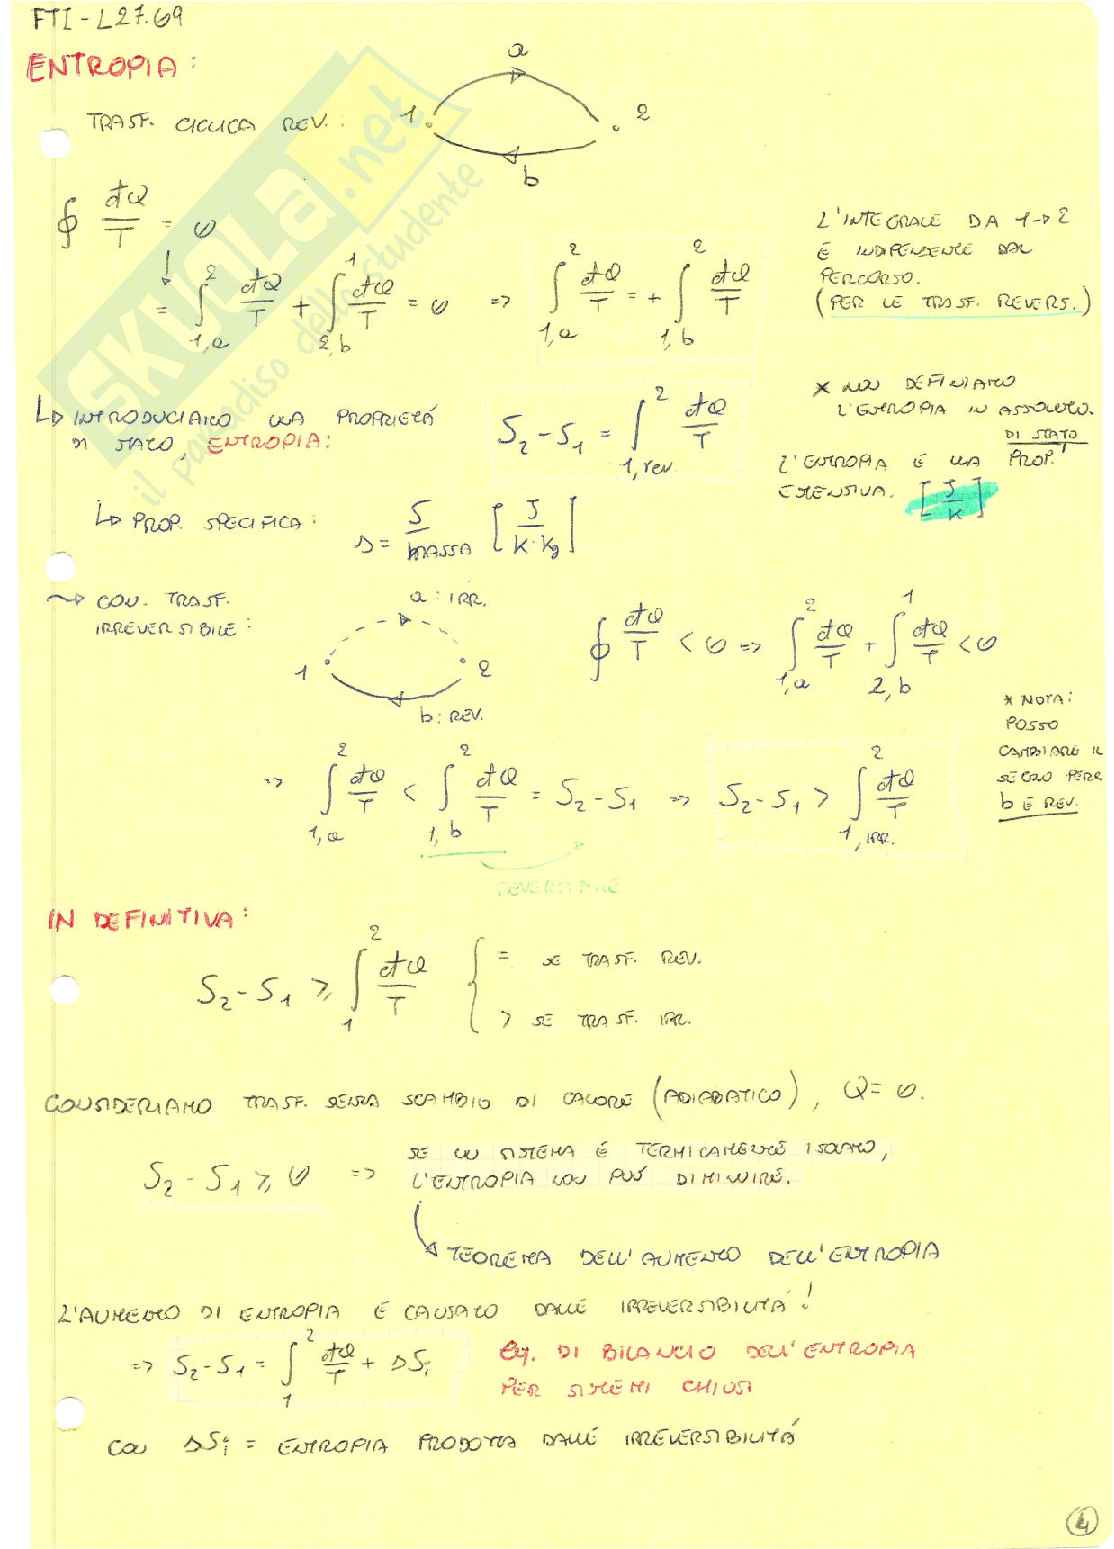 FTI - L27.G9
ENTROPIA:
TRASF. CICLICA REV.:
a
1
2
b
∮ đQ/T = 0
= ∫_{1,a}^{2} đQ/T + ∫_{2,b}^{1} đQ/T = 0 => ∫_{1,a}^{2} đQ/T = + ∫_{1,b}^{2} đQ/T
L'INTEGRALE DA 1→2
È INDIPENDENTE DAL
PERCORSO.
(PER LE TRASF. REVERS.)
↳ INTRODUCIAMO UNA PROPRIETÁ
DI STATO, ENTROPIA:
S₂ - S₁ = ∫_{1,rev}^{2} đQ/T
* NON DEFINIAMO
L'ENTROPIA IN ASSOLUTO.
L'ENTROPIA É UNA PROP. DI STATO
ESTENSIVA. [J/K]
↳ PROP. SPECIFICA:
s = S/MASSA [J/K·Kg]
~> CON TRASF.
IRREVERSIBILE:
a: IRR.
1
2
b: REV.
∮ đQ/T < 0 => ∫_{1,a}^{2} đQ/T + ∫_{2,b}^{1} đQ/T < 0
* NOTA:
POSSO
CAMBIARE IL
SEGNO PERR
b É REV.
=> ∫_{1,a}^{2} đQ/T < ∫_{1,b}^{2} đQ/T = S₂ - S₁ => S₂ - S₁ > ∫_{1,IRR.}^{2} đQ/T
REVERSIBILE
IN DEFINITIVA:
S₂ - S₁ ≥ ∫_{1}^{2} đQ/T { = SE TRASF. REV.
> SE TRASF. IRR.
CONSIDERIAMO TRASF. SENZA SCAMBIO DI CALORE (ADIABATICO), Q = 0.
S₂ - S₁ ≥ 0 => SE UN SISTEMA É TERMICAMENTE ISOLATO,
L'ENTROPIA NON PUÓ DIMINUIRE.
TEOREMA DELL'AUMENTO DELL'ENTROPIA
L'AUMENTO DI ENTROPIA É CAUSATO DALLE IRREVERSIBILITÁ!
=> S₂ - S₁ = ∫_{1}^{2} đQ/T + ΔSᵢ
EQ. DI BILANCIO DELL'ENTROPIA
PER SISTEMI CHIUSI
CON ΔSᵢ = ENTROPIA PRODOTTA DALLE IRREVERSIBILITÁ
4
SKUOLA.net
il paradiso dello studente